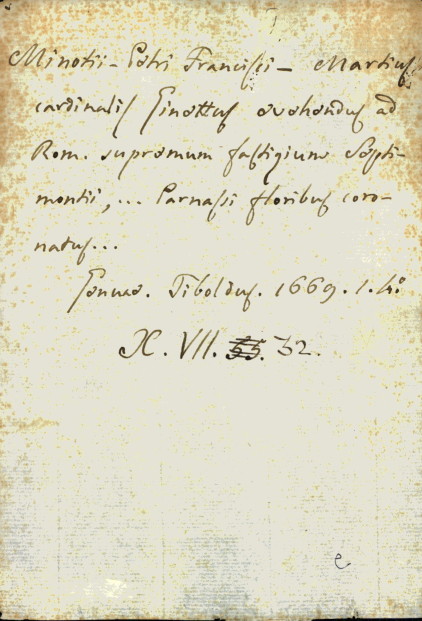 Minotii - Petri Francisci - Martius
cardinalis Ginettus evehendus ad
Rom. supremum fastigium Septi-
montii, ... Parnassi floribus coro-
natus...
Genuae. Tiboldus. 1669. 1. 4°
X. VII. 55. 32.
e